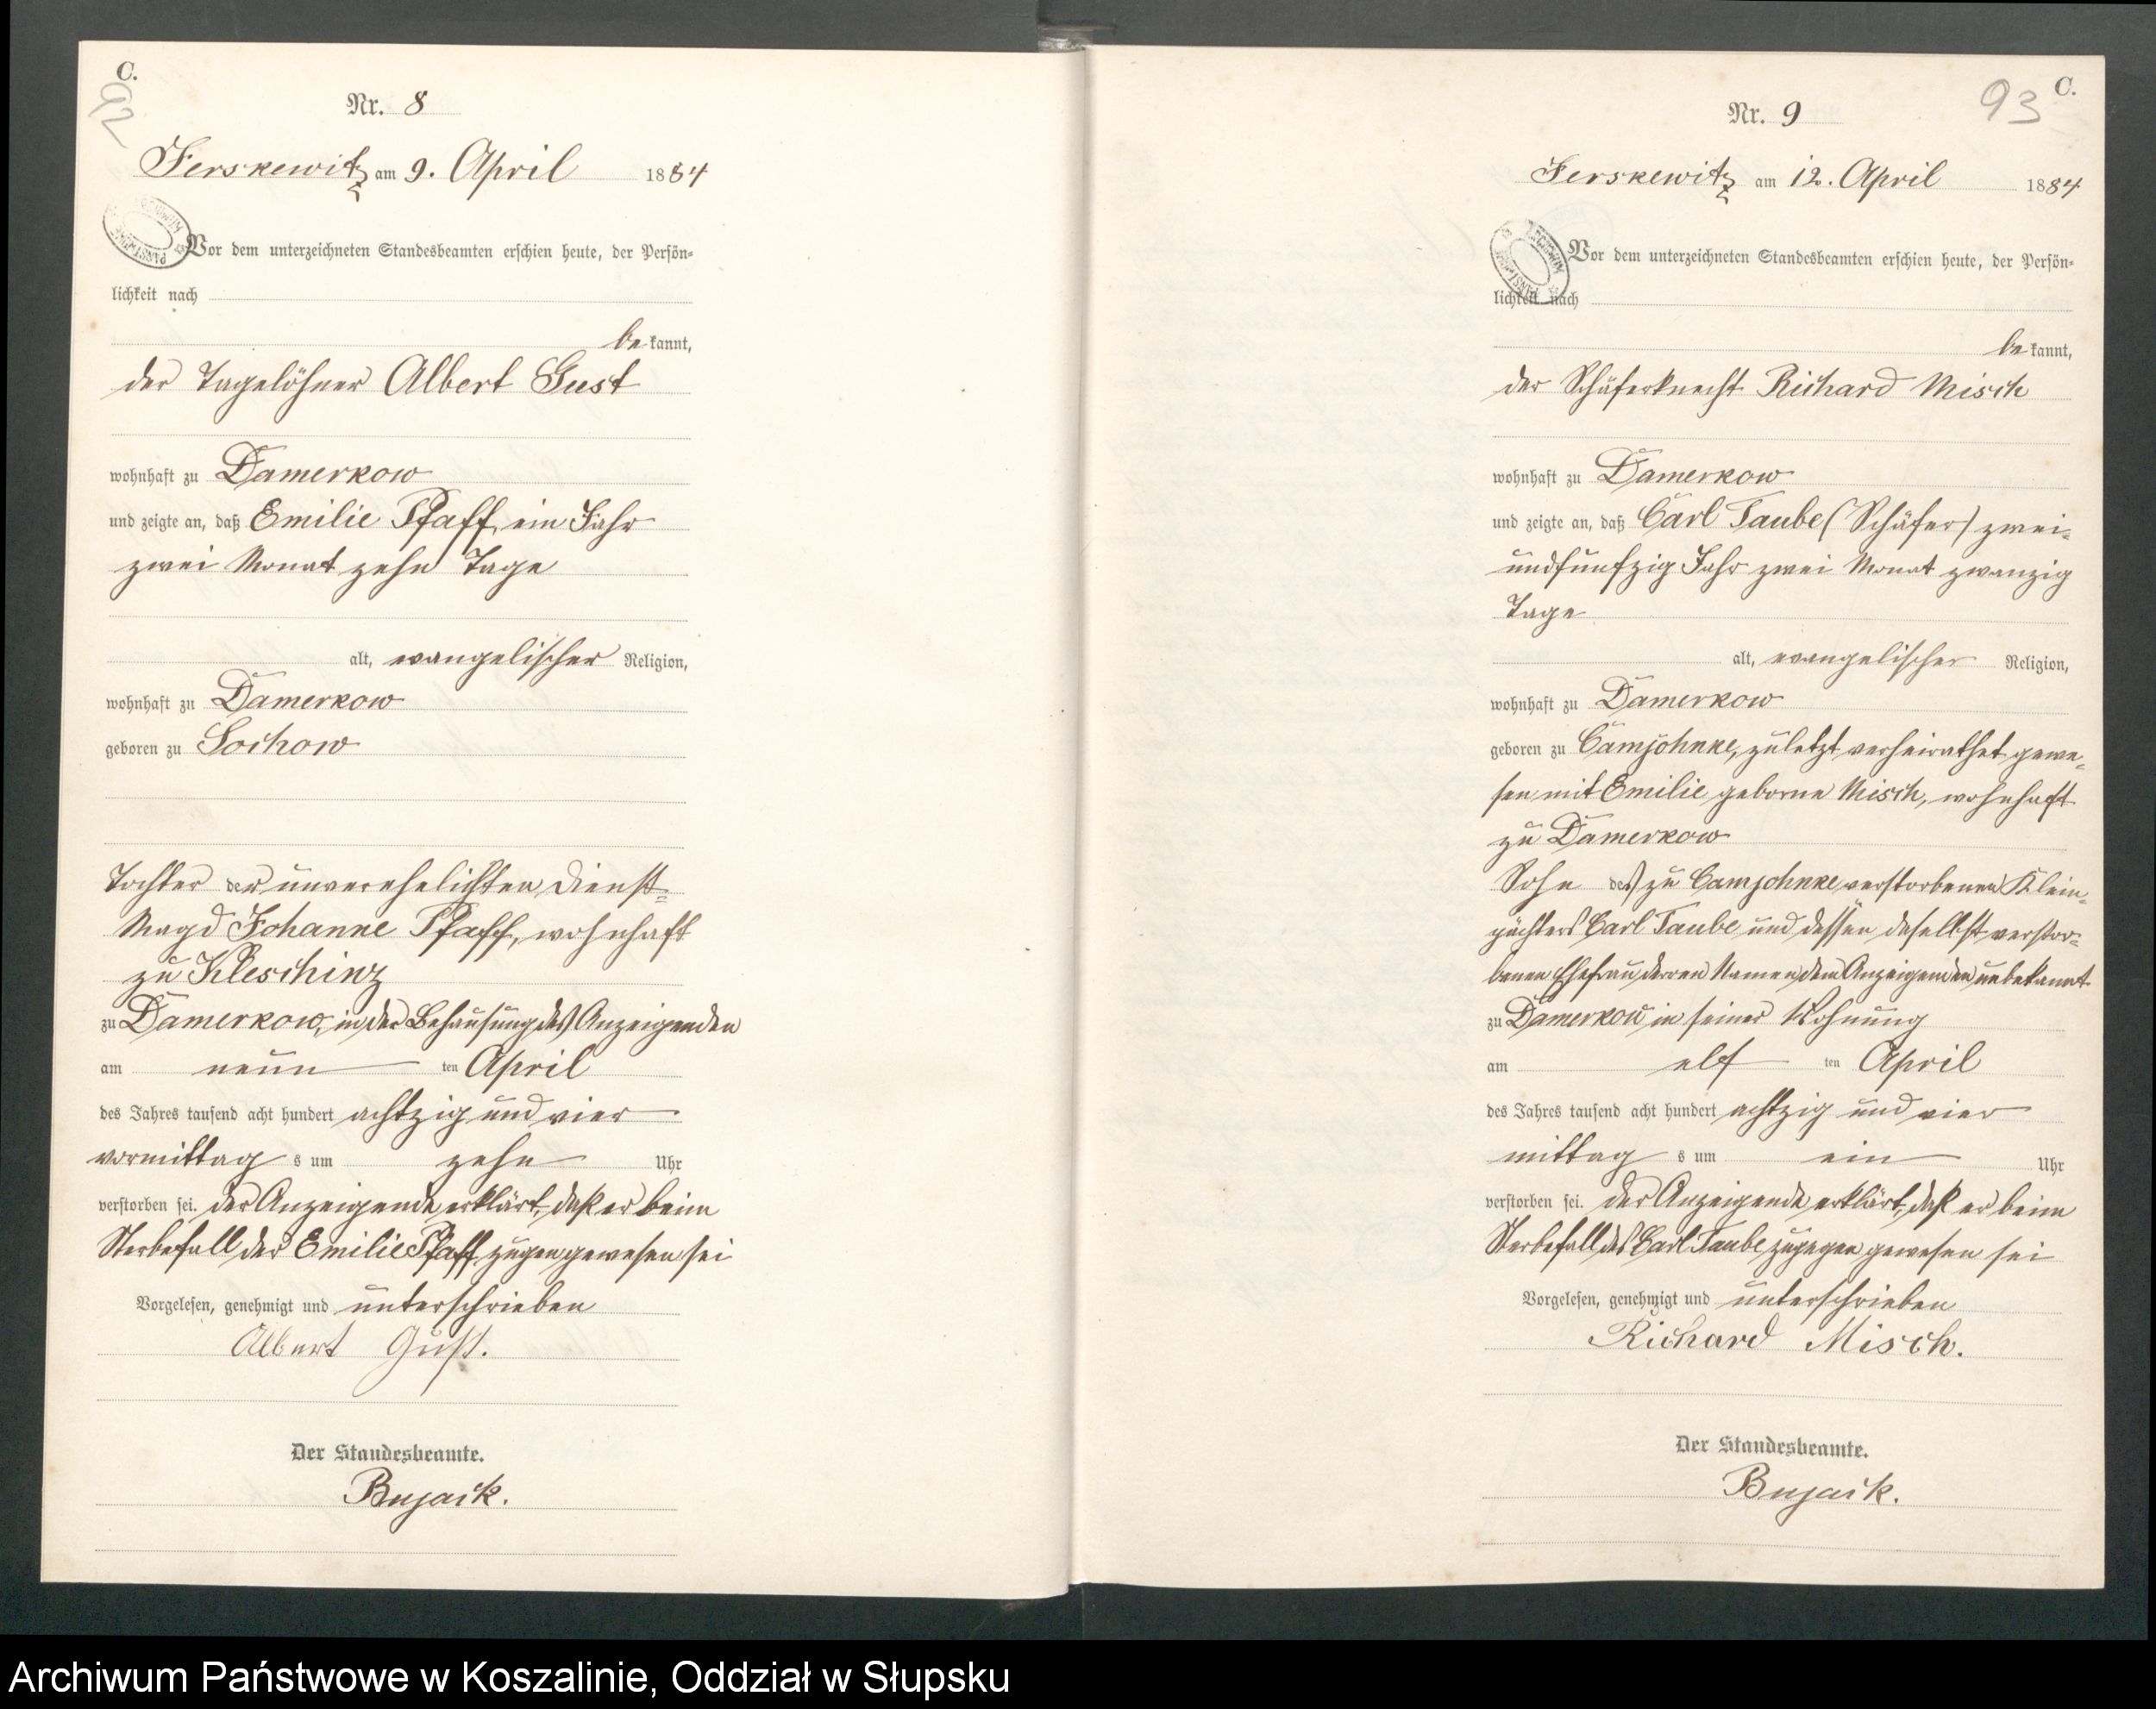 C.
92
Nr. 8
Jerskewitz am 9. April 1884
Vor dem unterzeichneten Standesbeamten erschien heute, der Persön-
lichkeit nach
be kannt,
der Tagelöhner Albert Gust
wohnhaft zu Damerkow
und zeigte an, daß Emilie Pfaff, ein Jahr
zwei Monat zehn Tage
alt, evangelischer Religion,
wohnhaft zu Damerkow
geboren zu Sochow
Tochter der unverehelichten Dienst-
Magd Johanne Pfaff, wohnhaft
zu Kleschinz
zu Damerkow, in der Behausung des Anzeigenden
am neun ten April
des Jahres tausend acht hundert achtzig und vier
vormittag s um zehn Uhr
verstorben sei. der Anzeigende erklärt, daß er beim
Sterbefall der Emilie Pfaff zugen gewesen sei
Vorgelesen, genehmigt und unterschrieben
Albert Gust.
Der Standesbeamte.
Bujack.
93 C.
Nr. 9
Jerskewitz am 12. April 1884
Vor dem unterzeichneten Standesbeamten erschien heute, der Persön-
lichkeit nach
be kannt,
der Schäferknecht Richard Misch
wohnhaft zu Damerkow
und zeigte an, daß Carl Taube (Schäfer) zwei-
undfunfzig Jahr zwei Monat zwanzig
Tage
alt, evangelischer Religion,
wohnhaft zu Damerkow
geboren zu Camjohnke, zuletzt verheirathet gewe-
sen mit Emilie geborne Misch, wohnhaft
zu Damerkow
Sohn des zu Camjohnke verstorbenen Klein-
pächters Carl Taube und dessen daselbst verstor-
benen Ehefrau, deren Namen dem Anzeigenden unbekannt
zu Damerkow in seiner Wohnung
am elf ten April
des Jahres tausend acht hundert achtzig und vier
mittag s um ein Uhr
verstorben sei. der Anzeigende erklärt, daß er beim
Sterbefall des Carl Taube zugegen gewesen sei
Vorgelesen, genehmigt und unterschrieben
Richard Misch.
Der Standesbeamte.
Bujack.
Archiwum Państwowe w Koszalinie, Oddział w Słupsku